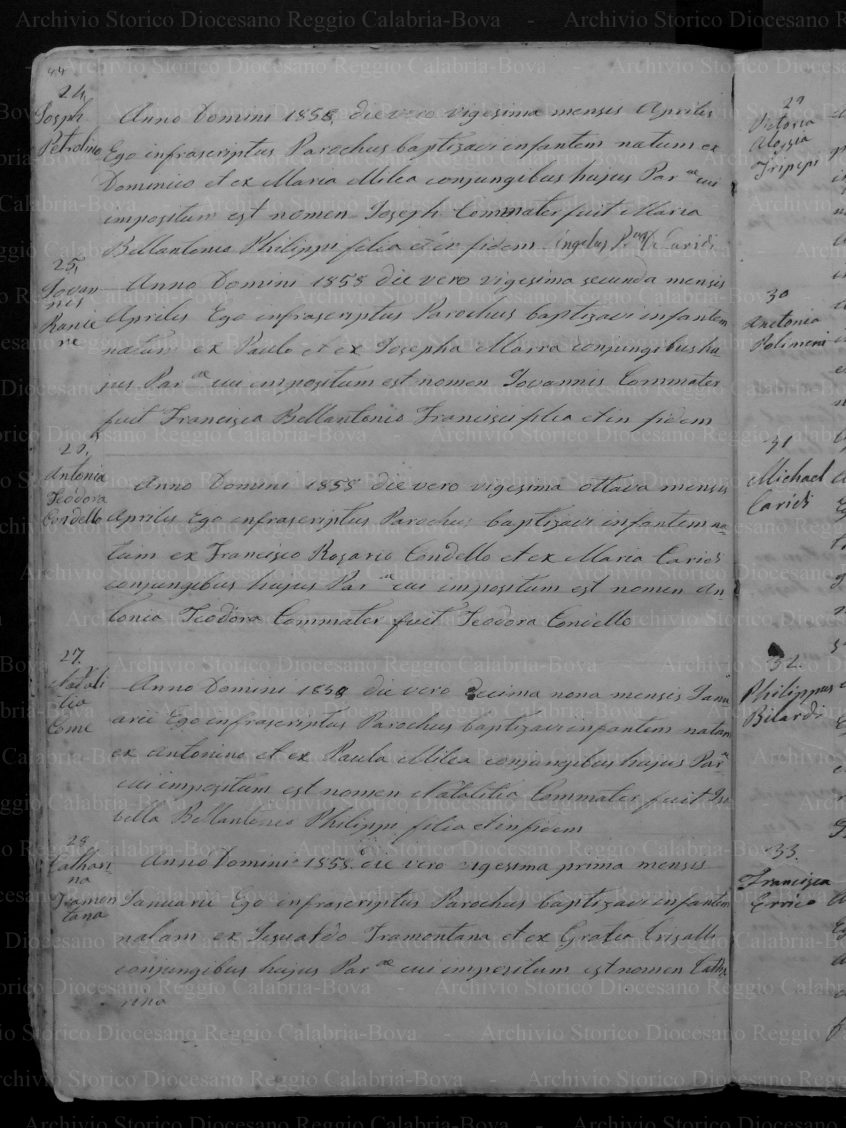 44
24.
Joseph
Petrolino
Anno Domini 1858, die vero vigesima mensis Aprilis
Ego infrascriptus Parochus baptizavi infantem natum ex
Dominico et ex Maria Milea conjungibus hujus Par.æ cui
impositum est nomen Joseph Commater fuit Maria
Bellantonio Philippi filia et in fidem Angelus Caridi
25.
Jovan
nes
Ranie
re
Anno Domini 1858 die vero vigesima secunda mensis
Aprilis Ego infrascriptus Parochus baptizavi infantem
natum ex Paulo et ex Josepha Marra conjungibus hu
jus Par.æ cui impositum est nomen Jovannis Commater
fuit Francisca Bellantonio Francisci filia et in fidem
26.
Antonia
Teodora
Condello
Anno Domini 1858 die vero vigesima ottava mensis
Aprilis Ego infrascriptus Parochus baptizavi infantem na
tum ex Francisco Rosario Condello et ex Maria Caridi
conjungibus hujus Par.æ cui impositum est nomen An
tonia Teodora Commater fuit Teodora Condello
27.
Natali
tia
Come
Anno Domini 1858 die vero decima nona mensis Janu
arii Ego infrascriptus Parochus baptizavi infantem natam
ex Antonino et ex Paula Milea conjungibus hujus Par.æ
cui impositum est nomen Natalitia Commater fuit Isa
bella Bellantonio Philippi filia et in fidem
28.
Cathari
na
Tramon
tana
Anno Domini 1858 die vero vigesima prima mensis
Januarii Ego infrascriptus Parochus baptizavi infantem
natam ex Tramontana et ex Gratia
conjungibus hujus Par.æ cui impositum est nomen Catha
rina
29
Victoria
Aloysia
Tripepi
30
Antonia
Polimeni
31
Michael
Caridi
32.
Philippus
Bilardi
33.
Francisca
Errico
Archivio Storico Diocesano Reggio Calabria-Bova